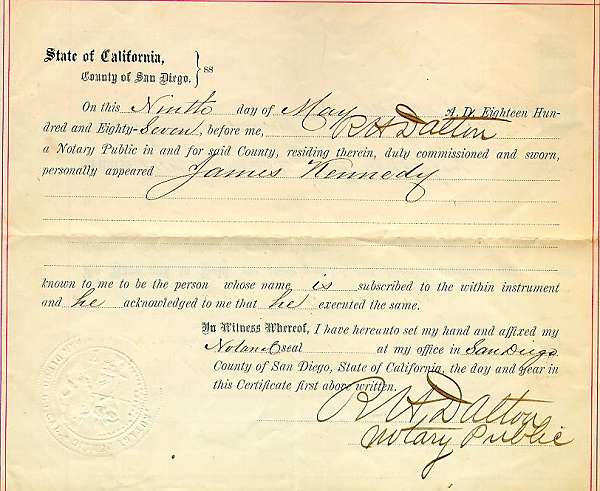 State of California,
County of San Diego. } ss
On this Ninth day of May A. D. Eighteen Hun-
dred and Eighty-Seven, before me, R H Dalton
a Notary Public in and for said County, residing therein, duly commissioned and sworn,
personally appeared James Kennedy
known to me to be the person whose name is subscribed to the within instrument
and he acknowledged to me that he executed the same.
In Witness Whereof, I have hereunto set my hand and affixed my
Notarial seal at my office in San Diego
County of San Diego, State of California, the day and year in
this Certificate first above written.
R H Dalton
Notary Public